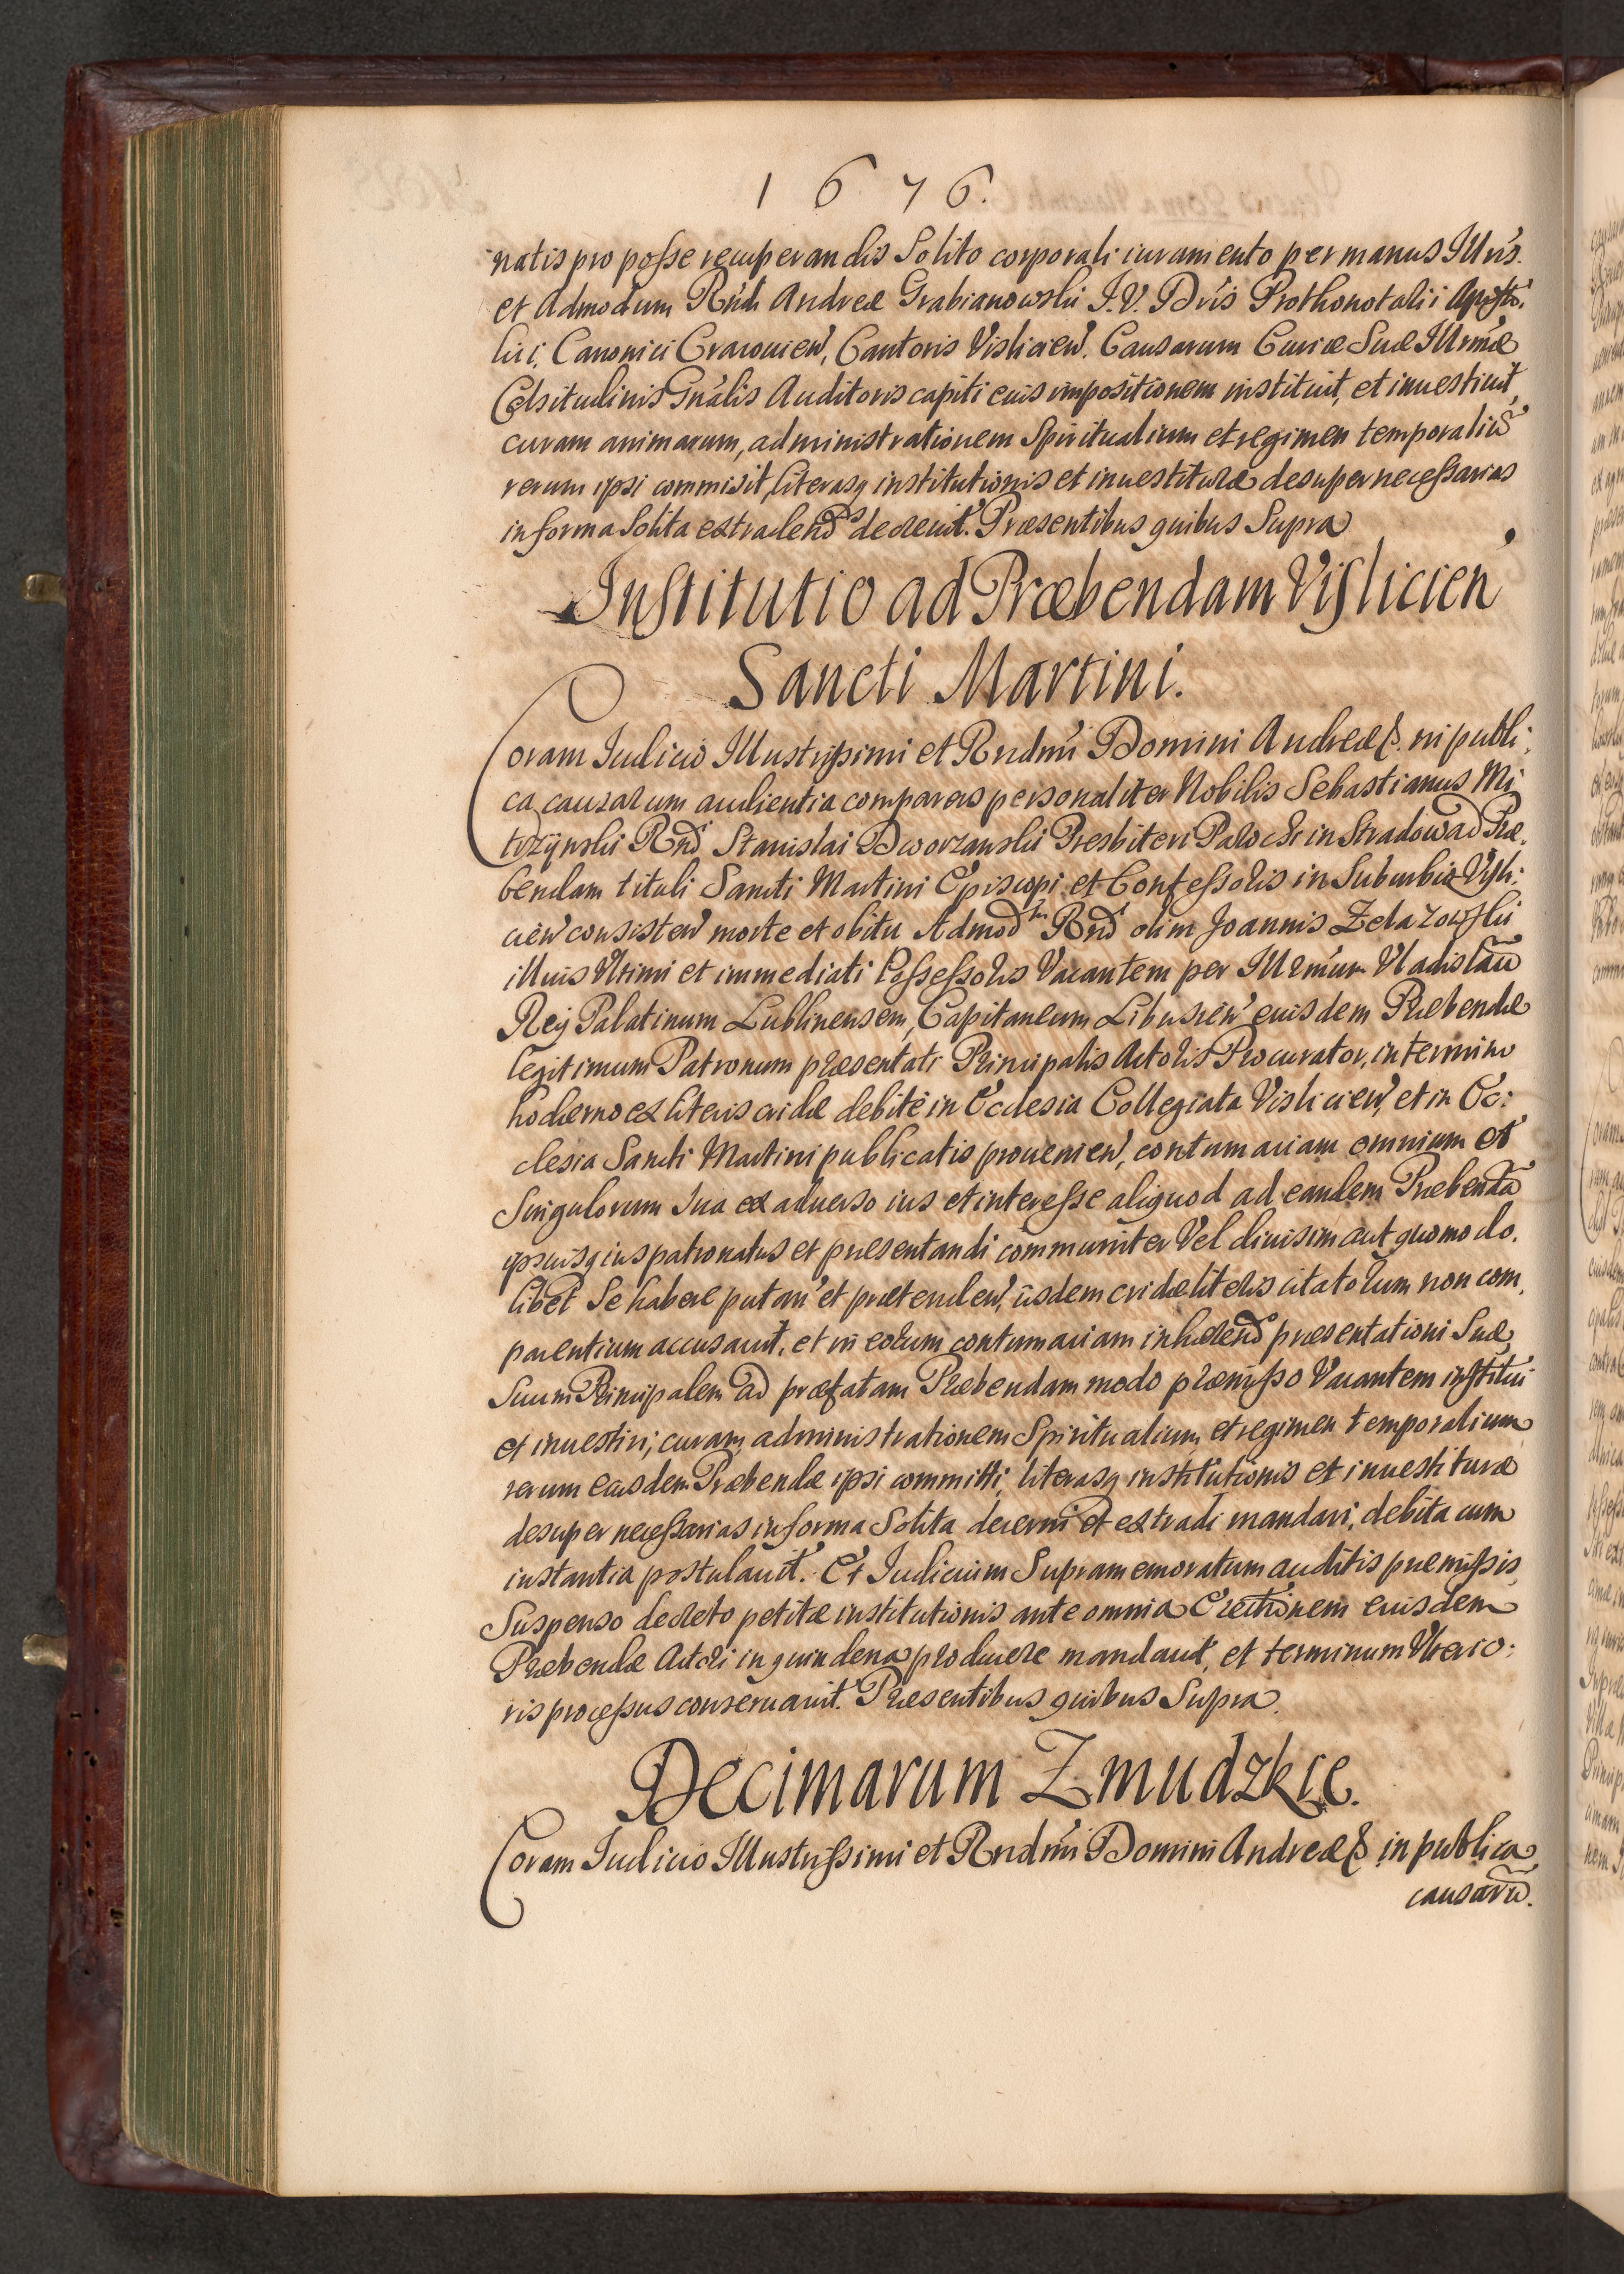 1 6 7 6.
natis pro posse recuperandis Solito corporali iuramento per manus Illris.
et Admodum Rndi Andreæ Grabianowski I. V. Dris Prothonotarii Aposto:
lici, Canonici Cracouien, Cantoris Vislicien. Causarum Curiæ Suæ Illrmæ
Celsitudinis Gnalis Auditoris capiti eius impositionem instituit, et inuestiuit,
curam animarum, administrationem Spiritualium et regimen temporaliũ
rerum ipsi commisit, literasq institutionis et inuestituræ desuper necessarias
in forma Solita extradend decreuit. Præsentibus quibus Supra
Institutio ad Præbendam Vislicien
Sancti Martini.
Coram Iudicio Illustrissimi et Rndmi Domini Andreæ &. in publi:
ca causarum audientia comparens personaliter Nobilis Sebastianus Mi
trzynski Rnd Stanislai Dworzanski Presbiteri Parochi in Stradow ad Præ:
bendam tituli Sancti Martini Episcopi et Confessoris in Suburbio Visli:
cien consisten morte et obitu Admodm Rnd olim Joannis Zelazowski
illius Vltimi et immediati Possessoris Vacantem per Illrmum Vladislaũ
Rey Palatinum Lublinensem, Capitaneum Libusien eiusdem Præbendæ
legitimum Patronum præsentati Principalis Actoris Procurator, in termino
hodierno ex literis cridæ debitè in Ecclesia Collegiata Vislicien, et in Ec:
clesia Sancti Martini publicatis prouenien, contumaciam omnium et
Singulorum Sua ex aduerso ius et interesse aliquod ad eandem Præbendã
ipsiusq ius patronatus et præsentandi communiter Vel diuisim aut quomodo.
libet Se habere putan et prætenden, iisdem cridæ literis citatorum non com,
parentium accusauit, et in eorum contumaciam inhærend præsentationi Suæ
Suum Principalem ad præfatam Præbendam modo præmisso Vacantem institui
et inuestiri; curam administrationem Spiritualium et regimen temporalium
rerum eiusdem Præbendæ ipsi committi, literasq institutionis et inuestituræ
desuper necessarias in forma Solita decerni et extradi mandari, debita cum
instantia postulauit. Et Iudicium Supramemoratum auditis præmissis,
Suspenso decreto petitæ institutionis ante omnia Erectionem eiusdem
Præbendæ Actori in quindena producere mandauit, et terminum Vlterio:
ris processus conseruauit. Præsentibus quibus Supra.
Decimarum Zmudzkie.
Coram Iudicio Illustrissimi et Rndmi Domini Andreæ & in publica
causarũ.